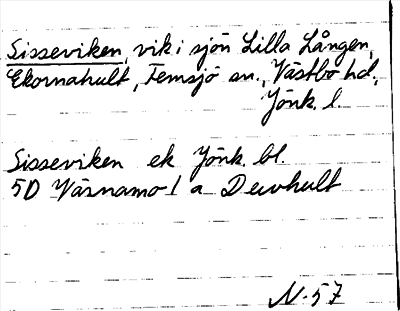 Sisseviken, vik i sjön Lilla Lången,
Ekornahult, Femsjö sn., Västbo hd,
Jönk. l.
Sisseviken ek Jönk. bl.
5D Värnamo 1 a Duvhult
N-57